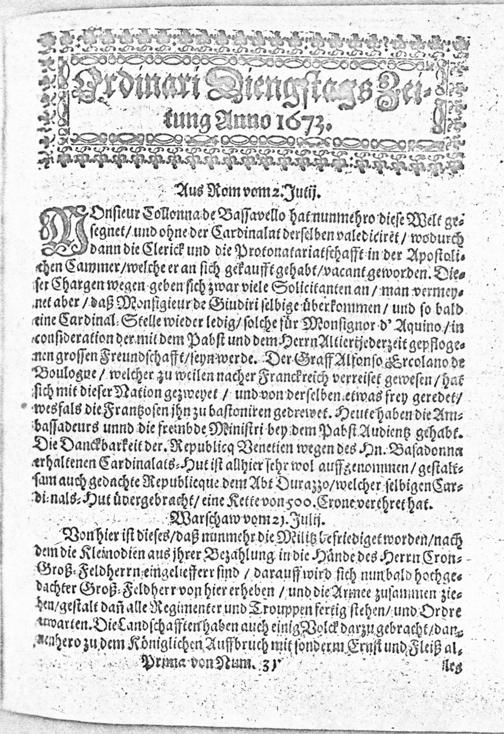 Ordinari Diengstags Zei-
tung Anno 1673.
Aus Rom vom 2. Julij.
MOnsieur Collonna de Bassavello hat nunmehro diese Welt ge-
segnet / und ohne der Cardinalat derselben valediciret / wodurch
dann die Clerick und die Protonatariatschafft in der Apostoli-
chen Cammer / welche er an sich gekaufft gehabt / vacant geworden. Die-
ser Chargen wegen geben sich zwar viele Solicitanten an / man vermey-
net aber / daß Monsigieur de Giudiri selbige überkommen / und so bald
eine Cardinal-Stelle wieder ledig / solche für Monsignor d' Aquino / in
consideration der mit dem Pabst und dem Herrn Altieri jederzeit gepfloge-
nen grossen Freundschafft / seyn werde. Der Graff Alfonso Ercolano de
Boulogne / welcher zu weilen nacher Franckreich verreiset gewesen / hat
sich mit dieser Nation gezweyet / und von derselben etwas frey geredet /
wesfals die Frantzosen ihn zu bastoniren gedrewet. Heute haben die Am-
bassadeurs unnd die frembde Ministri bey dem Pabst Audientz gehabt.
Die Danckbarkeit der Republicq Venetien wegen des Hn. Basadonna
erhaltenen Cardinalats-Hut ist allhier sehr wol auffgenommen / gestalt-
sam auch gedachte Republicque dem Abt Durazzo / welcher selbigen Car-
di-nals-Hut übergebracht / eine Kette von 500. Crone verehret hat.
Warschaw vom 21. Julij.
Von hier ist dieses / daß nunmehr die Militz befriediget worden / nach
dem die Kleinodien aus jhrer Bezahlung in die Hände des Herrn Cron-
Groß-Feldherrn eingelieffert sind / darauff wird sich nun bald hochge-
dachter Groß-Feldherr von hier erheben / und die Armee zusammen zie-
hen / gestalt dañ alle Regimenter und Trouppen fertig stehen / und Ordre
erwarten. Die Landschafften haben auch einig Volck darzu gebracht / dan-
nenhero zu dem Königlichen Auffbruch mit sonderm Ernst und Fleiß al-
Prima von Num. 31 les